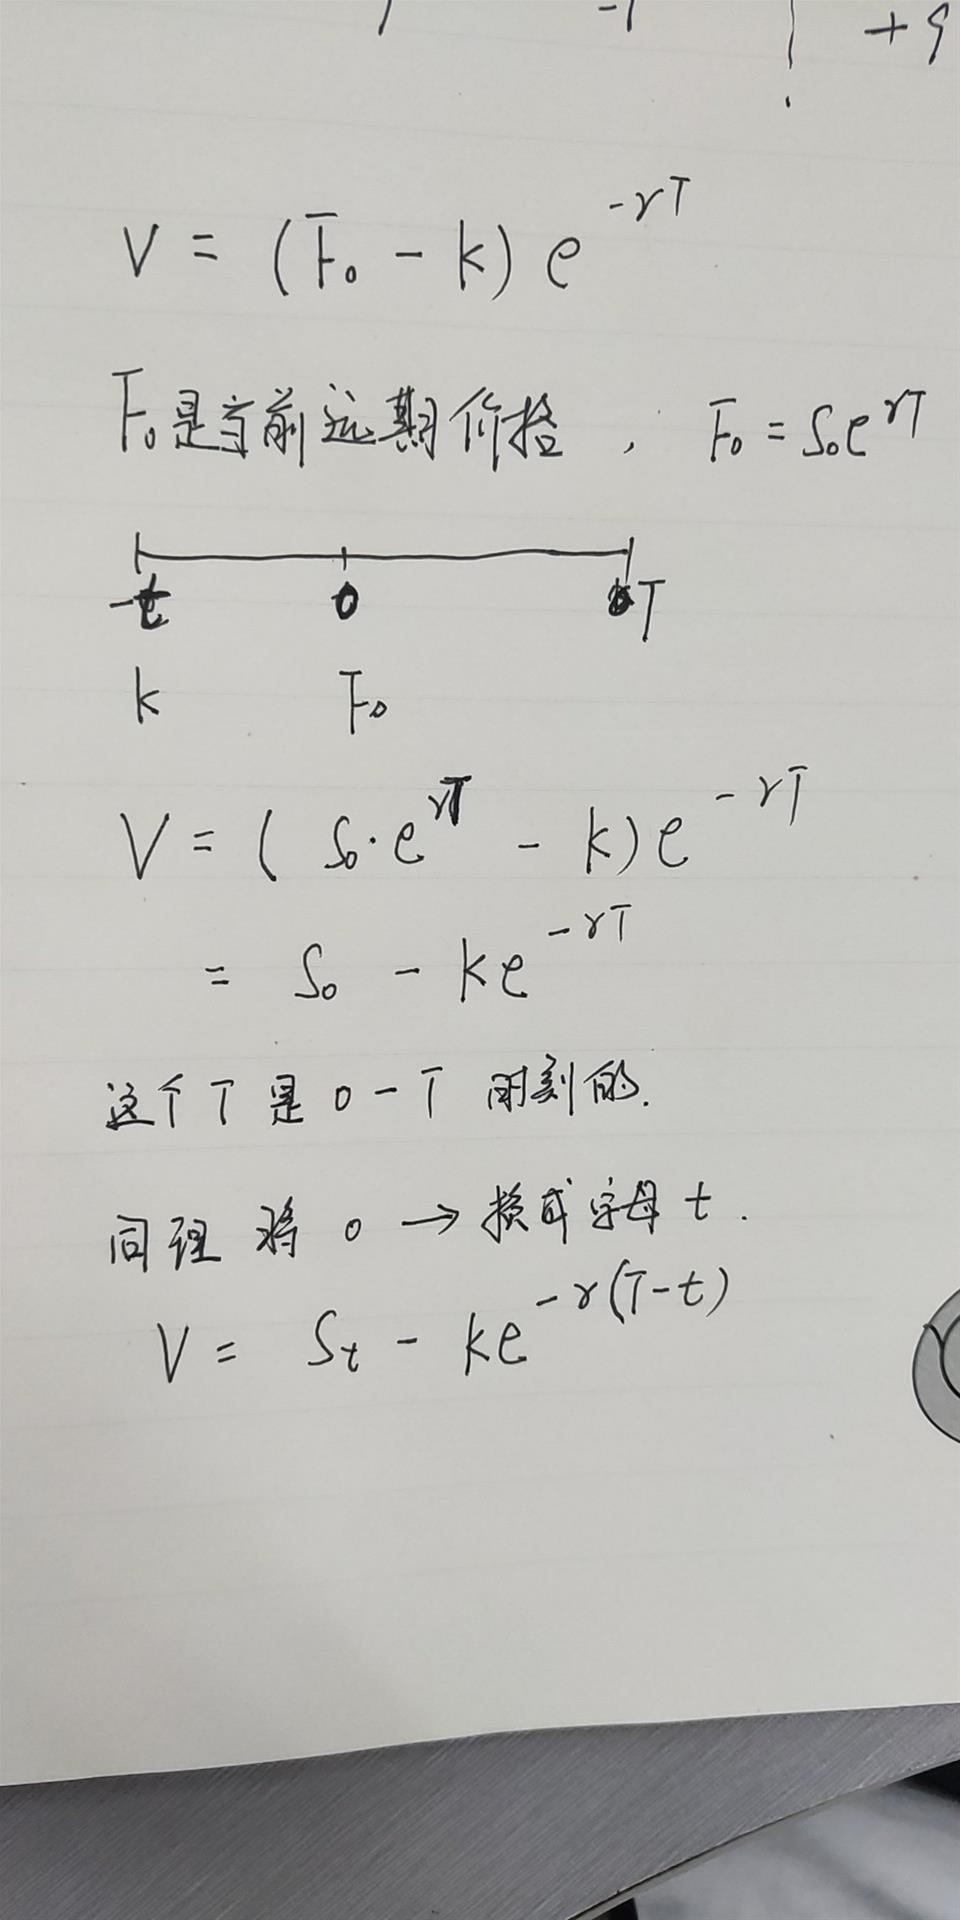 V = (F₀ - k) e^{-rT}
F₀是当前远期价格, F₀ = S₀e^{rT}
-t 0 T
k F₀
V = ( S₀·e^{rT} - k) e^{-rT}
= S₀ - ke^{-rT}
这个 T 是 0 - T 时刻的.
同理 将 0 → 换成字母 t.
V = Sₜ - ke^{-r(T-t)}